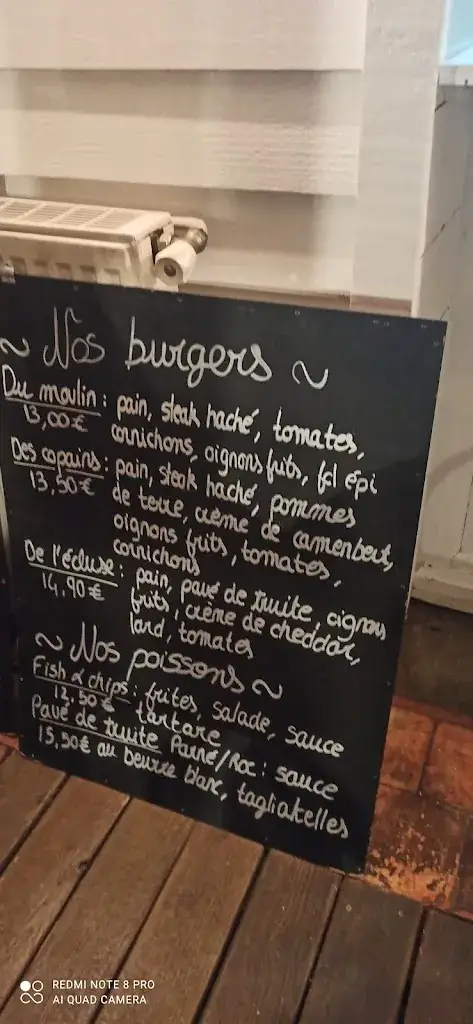 ~ Nos burgers ~
Du moulin : pain, steak haché, tomates,
13,00€ cornichons, oignons frits, fol épi
Des copains : pain, steak haché, pommes
13,50€ de terre, crème de camembert,
oignons frits, tomates,
cornichons
De l'écluse : pain, pavé de truite, oignons
14,90€ frits, crème de cheddar,
lard, tomates
~ Nos poissons ~
Fish & chips : frites, salade, sauce
12,50€ tartare
Pavé de truite Pané/Roc : sauce
15,50€ au beurre blanc, tagliatelles
REDMI NOTE 8 PRO
AI QUAD CAMERA